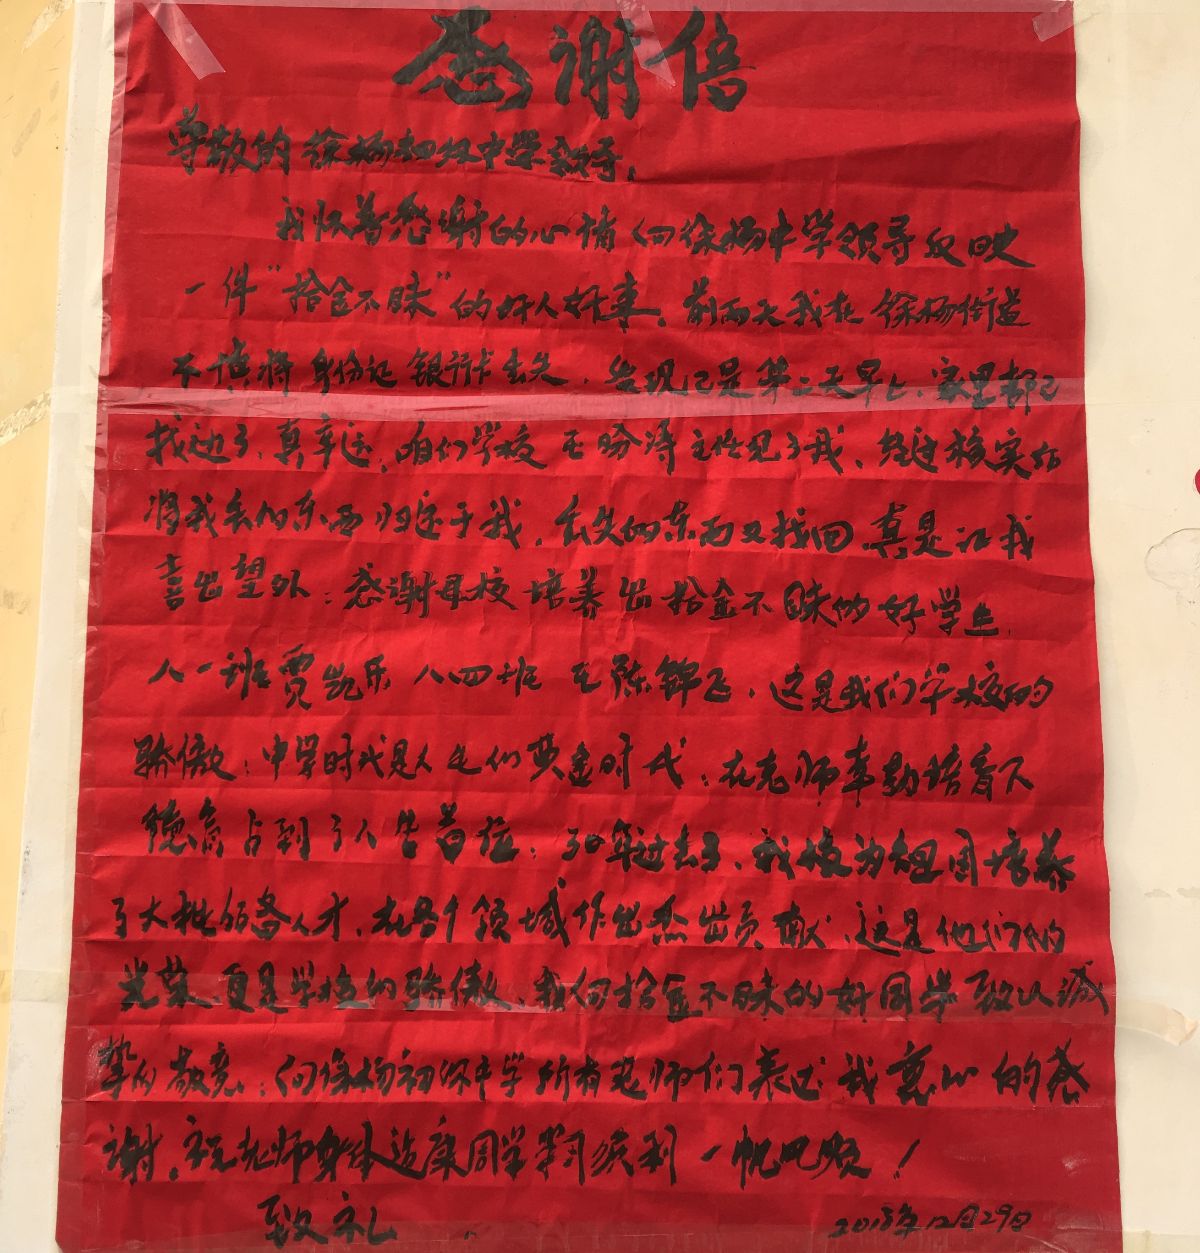 感谢信
尊敬的徐杨初级中学领导，
我怀着感谢的心情向徐杨中学领导反映
一件“拾金不昧”的好人好事。前两天我在徐杨街道
不慎将身份证银行卡丢失，发现已是第二天早上，家里都已
找过了，真幸运，咱们学校王 主任见了我，经过核实后
将我丢的东西归还于我，丢失的东西又找回，真是让我
喜出望外：感谢母校培养出拾金不昧的好学生，
八一班贾凯乐八四班王陈锦飞，这是我们学校的
骄傲：中学时代是人生们黄金时代：在老师辛勤培育下
德高占到了人生首位：30年过去了，我校为祖国培养
了大批 备人才，在各个领域作出杰出贡献，这是他们的
光荣，更是学校的骄傲，我向拾金不昧的好同学致以诚
挚的敬意：向徐杨初级中学所有老师们表达我衷心的感
谢，祝老师身体健康同学学习顺利一帆风顺！
致礼
2018年12月29日